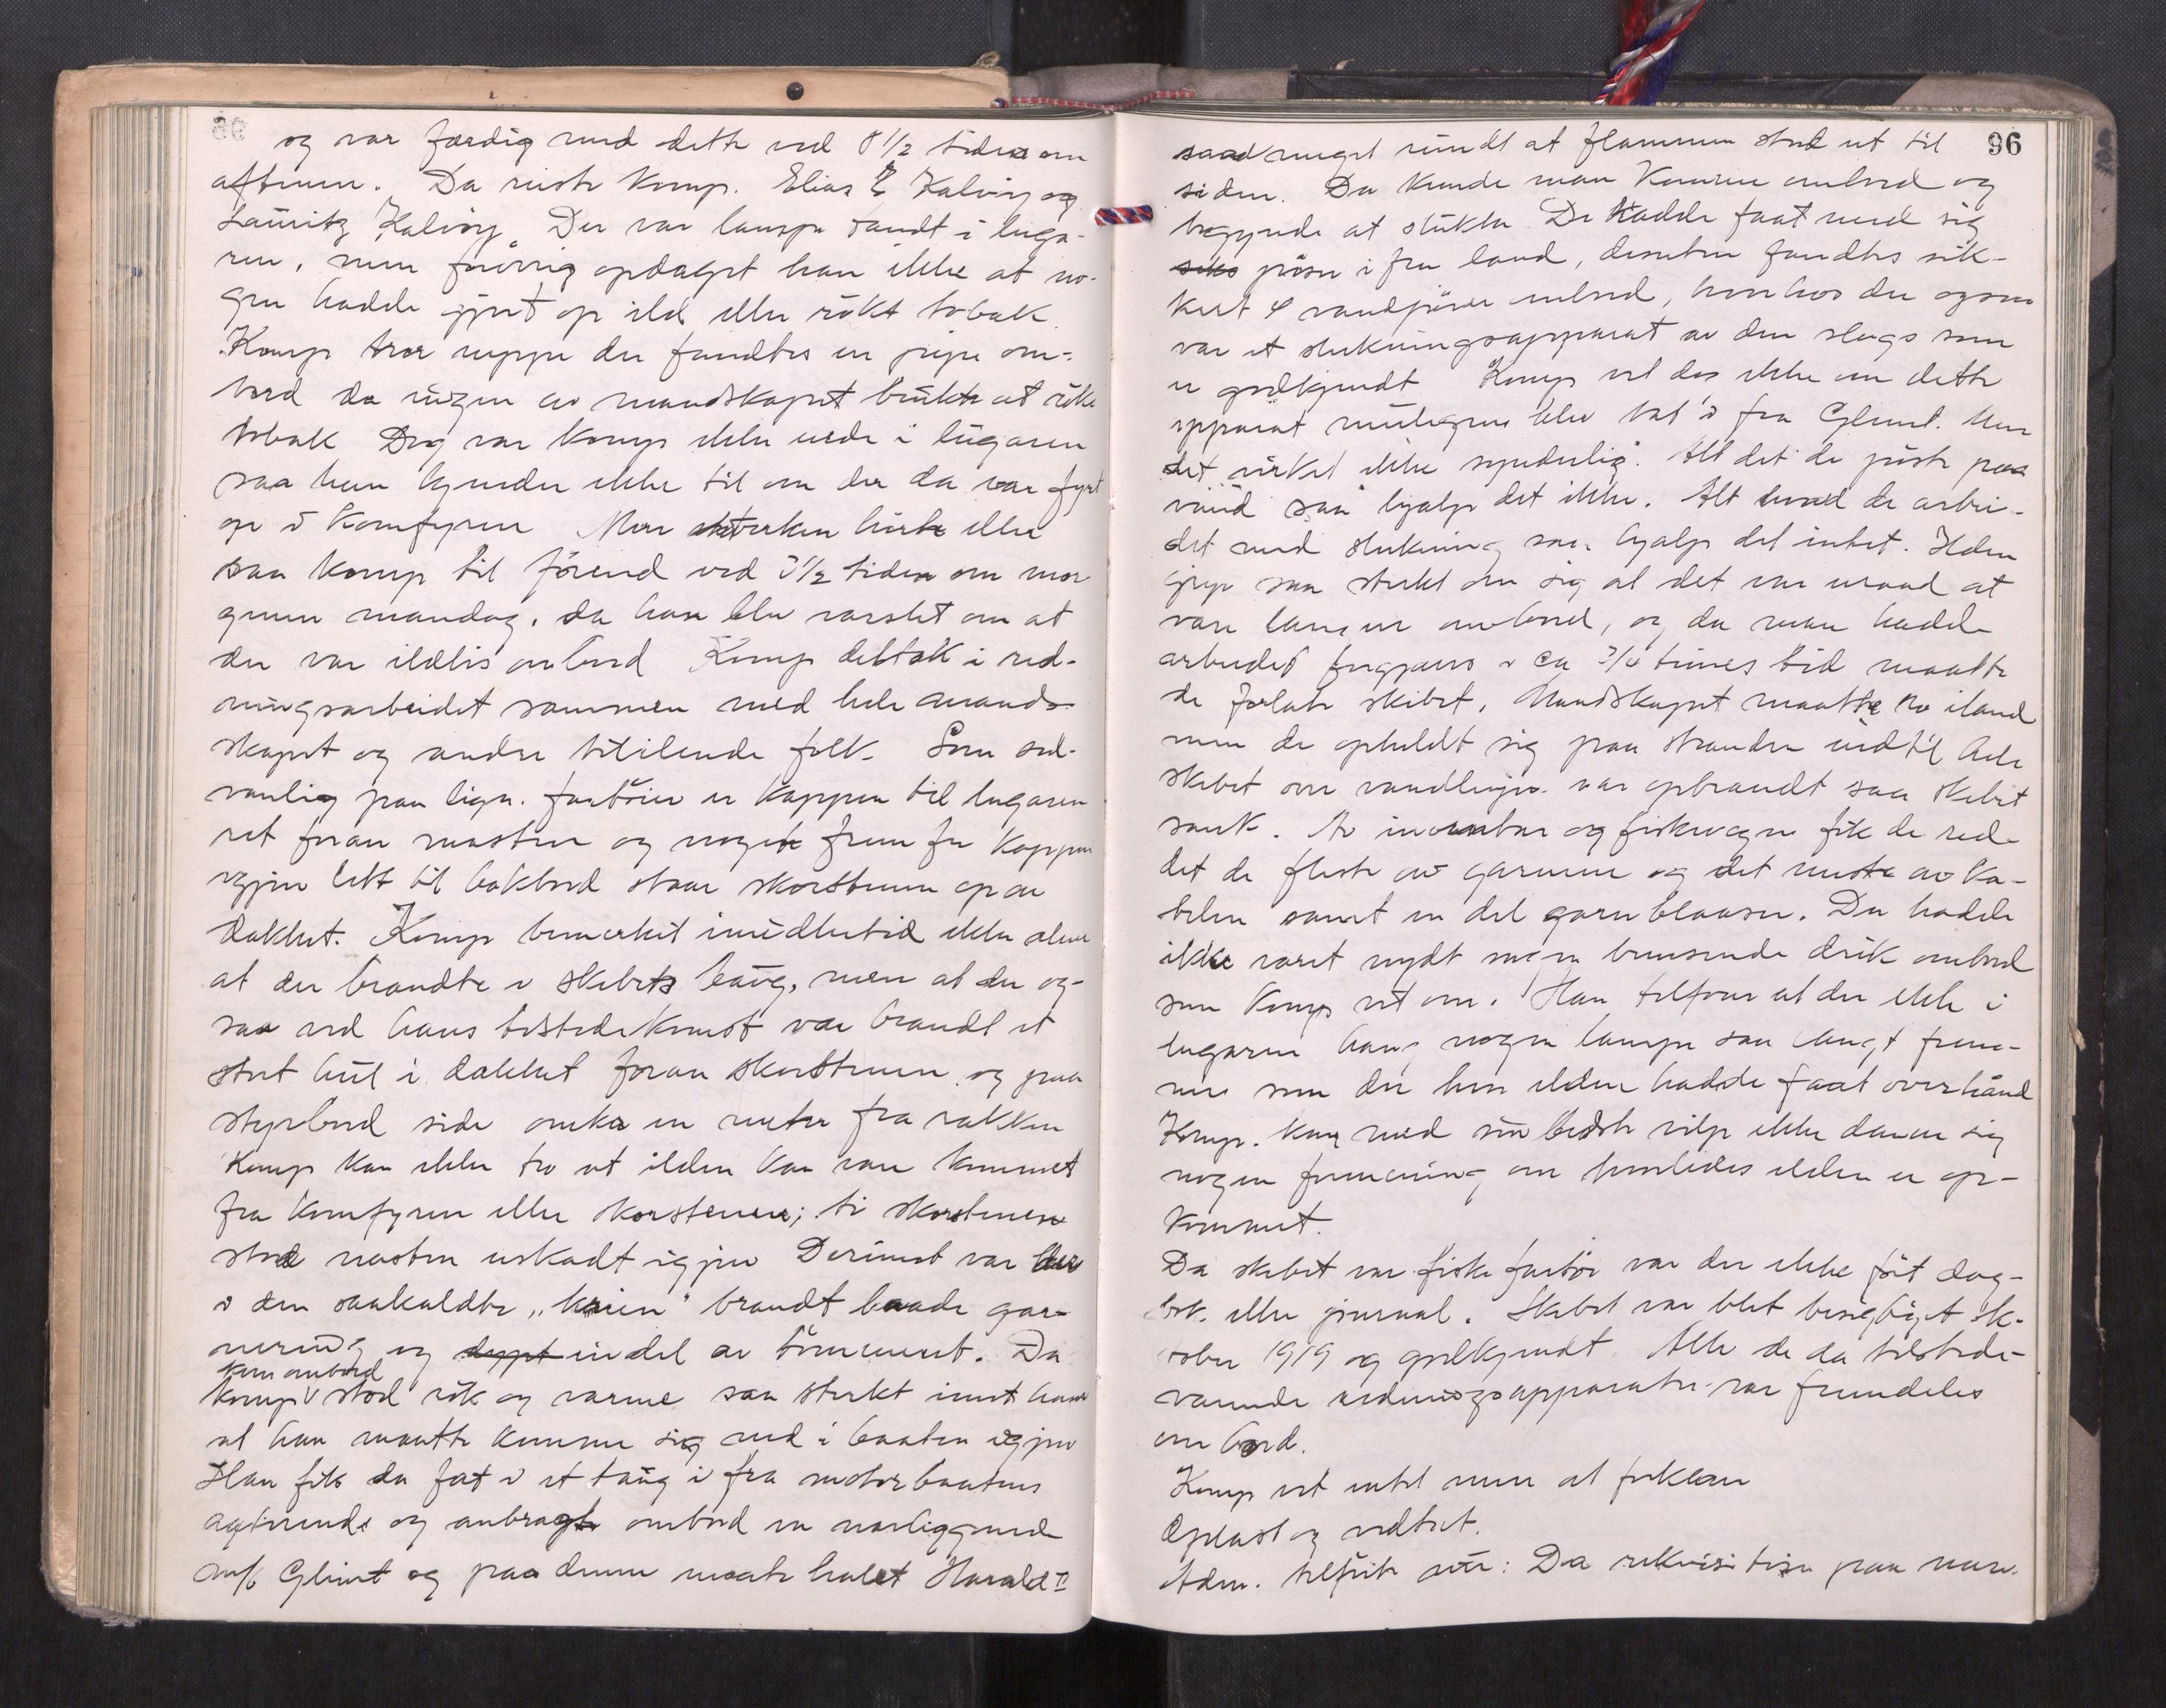 og var færdig med dette ved 8 1/2 tiden om
aftenen. Da reiste Komp. Elias E Kalvøy og
Lauritz Kalvøy. Der var lampe tændt i luga-
ren, men forøvrig opdaget han ikke at no-
gen hadde gjort op ild eller røkt tobak.
Komp tror neppe der fandtes en pipe om-
bord da ingen av mandskapet brukte at røke
tobak Dog var Komp ikke nede i lugaren
saa han kjender ikke til om der da var fyrt
op i Komfyren Mere hverken hørte eller
saa Komp til førend ved 3 1/2 tiden om mor
genen mandag, da han blev varslet om at
der var ildløs ombord Komp deltok i red-
ningsarbeidet sammen med hele mand-
skapet og andre tililende folk. Som sed-
vanlig paa lign. fartøier er kappen til lugaren
ret foran masten og noget frem for kappen
igjen litt til bakbord staar skorstenen op av
dækket. Komp bemerket imidlertid ikke alene
at der brændte i skibets baug, men at der og-
saa ved hans tilstedekomst var brændt et
stort hul i dækket foran skorstenen og paa
styrbord side omkr en meter fra rækken
Komp kan ikke tro at ilden kan være kommet
fra komfyren eller skorstenen; ti skorstenen
stod næsten uskadt igjen Derimot var der
i den saakaldte „krüen" brændt baade gar-
nering og dypt indel av tømmeret. Da
kom ombord
Komp v stod røk og varme saa sterkt imot ham
at han maatte komme sig ned i baaten igjen
Han fik da fat i et taug i fra motorbaatens
agterende og anbragte ombord en nærliggende
m/k Glimt og paa denne maate halet Harald II
96
saad meget rundt at flammen stod ut til
siden. Da kunde man komme ombord og
begynde at slukke De hadde faat med sig
seks pøser i fra land, desuten fandtes sik-
kert 4 vandpøser ombord, hvorhos der ogsaa
var et slukningsapparat av den slags som
er godkjendt Komp vet dog ikke om dette
apparat muligens blev tat i fra Glimt. Men
det virket ikke synderlig. Alt det de pøste paa
vand saa hjalp det ikke. Alt hvad de arbei-
det med slukning saa hjalp det intet. Ilden
grep saa sterkt om sig at det var uraad at
være længer ombord, og da man hadde
arbeidet forgjæves i ca 3/4 times tid maatte
de forlate skibet. Mandskapet maatte ro iland
men de opholdt sig paa stranden indtil hele
skibet over vandlinjen var opbrændt saa skibet
sank. Av inventar og fiskevegn fik de red-
det de fleste av garnene og det meste av ka-
belen samt en del garnblaaser. Der hadde
ikke været nydt nogen berusende drik ombord
som Komp vet om. Han tilføier at der ikke i
lugaren hang nogen lampe saa langt frem-
me som der hvor ilden hadde faat overhaand
Komp. kan med sin bedste vilje ikke danne sig
nogen formening om hvorledes ilden er op-
kommet.
Da skibet var fiskefartøi var der ikke ført dag-
bok eller journal. Skibet var blet besigtiget ok-
tober 1919 og godkjendt Alle de da tilstede-
værende redningsapparater var fremdeles
om bord.
Komp vet intet mere at forklare
Oplæst og vedtat.
Adm. tilførte rtn: Da rekvisitisjon paa nær-